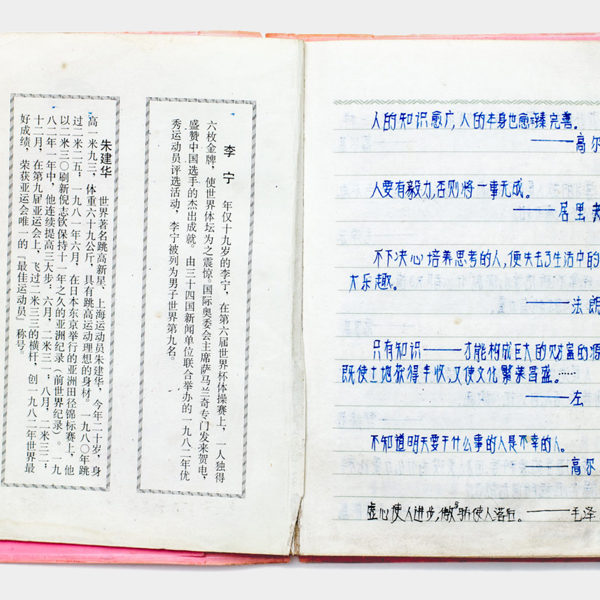 李宁 年仅十九岁的李宁，在第六届世界杯体操赛上，一人独得
六枚金牌，使世界体坛为之震惊。国际奥委会主席萨马兰奇专门发来贺电，
盛赞中国选手的杰出成就。由三十四国新闻单位联合举办的一九八二年优
秀运动员评选活动，李宁被列为男子世界第九名。
朱建华 世界著名跳高新星，上海运动员朱建华，今年二十岁，身
高一米九三，体重六十九公斤，具有跳高运动理想的身材。一九八〇年跳
过二米二五，一九八一年六月，在日本东京举行的亚洲田径锦标赛上，他
以二米三〇刷新倪志钦保持十一年之久的亚洲纪录（前世界纪录）。一九
八二年一年中，他连续提高三大步，六月，二米三一，八月，二米三二，
十二月，在第九届亚运会上，飞过二米三三的横杆，创一九八二年世界最
好成绩，荣获亚运会唯一的『最佳运动员』称号。
人的知识愈广，人的本身也愈臻完善。
——高尔
人要有毅力，否则将一事无成。
——居里夫
不下决心培养思考的人，便失去了生活中的
大乐趣。
——法朗
只有知识——才能构成巨大的财富的源
既使土地获得丰收，又使文化繁荣昌盛。……
——左
不知道明天要干什么事的人是不幸的人。
——高尔
虚心使人进步，骄傲使人落后。——毛泽